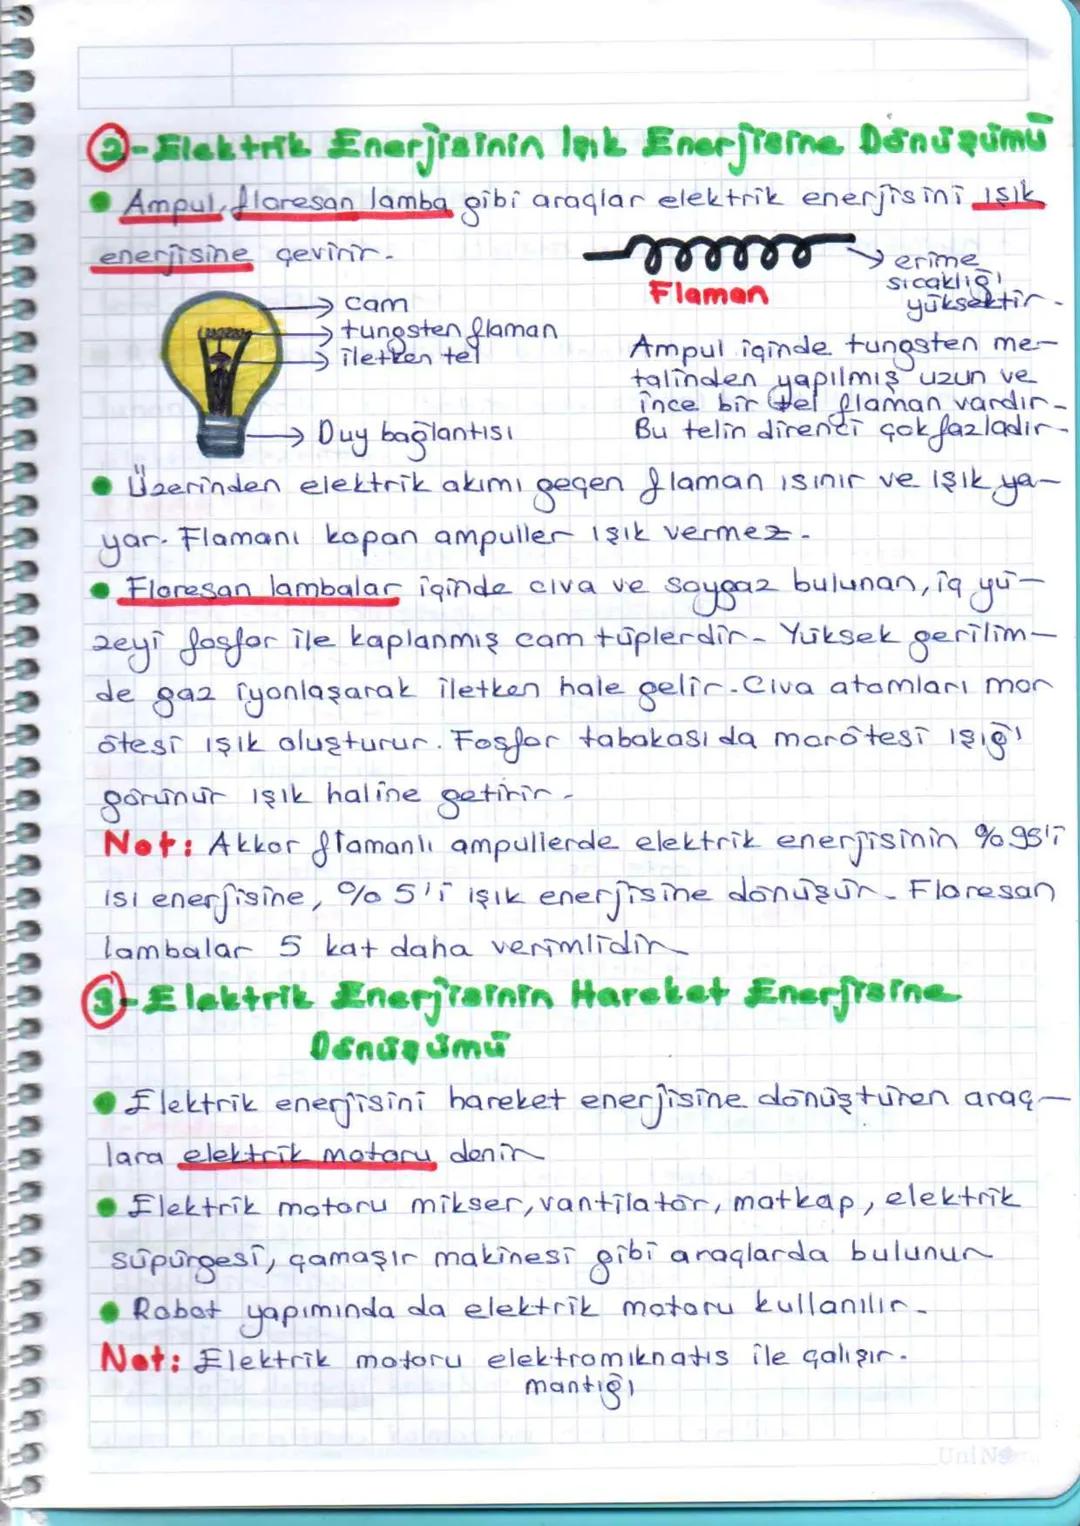 2-Elektrik Enerjisinin Işık Enerjisine Dönüşümü
Ampul, floresan lamba gibi araçlar elektrik enerjisini ışık
enerjisine çevirir.
Flaman
erime
sıcaklığı
yüksektir.
cam
tungsten flaman
iletken tel
Duy bağlantısı
Ampul içinde tungsten me-
talinden yapılmış uzun ve
ince bir tel flaman vardır.
Bu telin direnci çok fazladır.
Üzerinden elektrik akımı geçen flaman ısınır ve ışık ya-
yar. Flamanı kopan ampuller ışık vermez.
Floresan lambalar içinde cıva ve soygaz bulunan, iç yü-
zeyi fosfor ile kaplanmış cam tüplerdir. Yüksek gerilim-
de gaz iyonlaşarak iletken hale gelir. Cıva atomları mor
ötesi ışık oluşturur. Fosfor tabakası da morötesi ışığı
görünür ışık haline getirir.
Not: Akkor flamanlı ampullerde elektrik enerjisinin %95'i
ısı enerjisine, %5'i ışık enerjisine dönüşür. Floresan
lambalar 5 kat daha verimlidir
3-Elektrik Enerjisinin Hareket Enerjisine
Dönüşümü
Elektrik enerjisini hareket enerjisine dönüştüren araç-
lara elektrik motoru denir
Elektrik motoru mikser, vantilatör, matkap, elektrik
süpürgesi, çamaşır makinesi gibi araçlarda bulunur
Robot yapımında da elektrik motoru kullanılır.
Not: Elektrik motoru elektromıknatıs ile çalışır.
mantığı